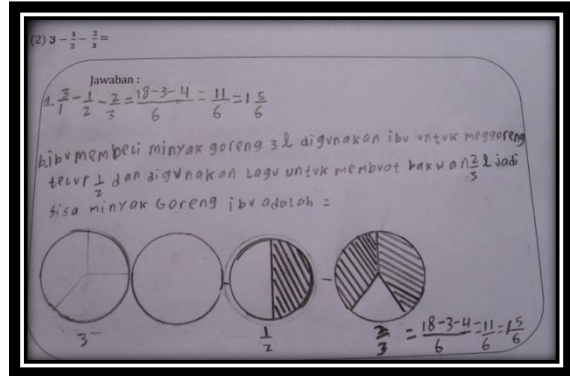 (2) 3 − 1/2 − 2/3 =
Jawaban :
a. 3/1 − 1/2 − 2/3 = 18-3-4/6 = 11/6 = 1 5/6
b. ibu membeli minyak goreng 3 l digunakan ibu untuk meggoreng
telur 1/2 dan digunakan lagu untuk membuat bakwan 2/3 l jadi
sisa minyak Goreng ibu adalah =
3 − 1/2 2/3 = 18-3-4/6 = 11/6 = 1 5/6